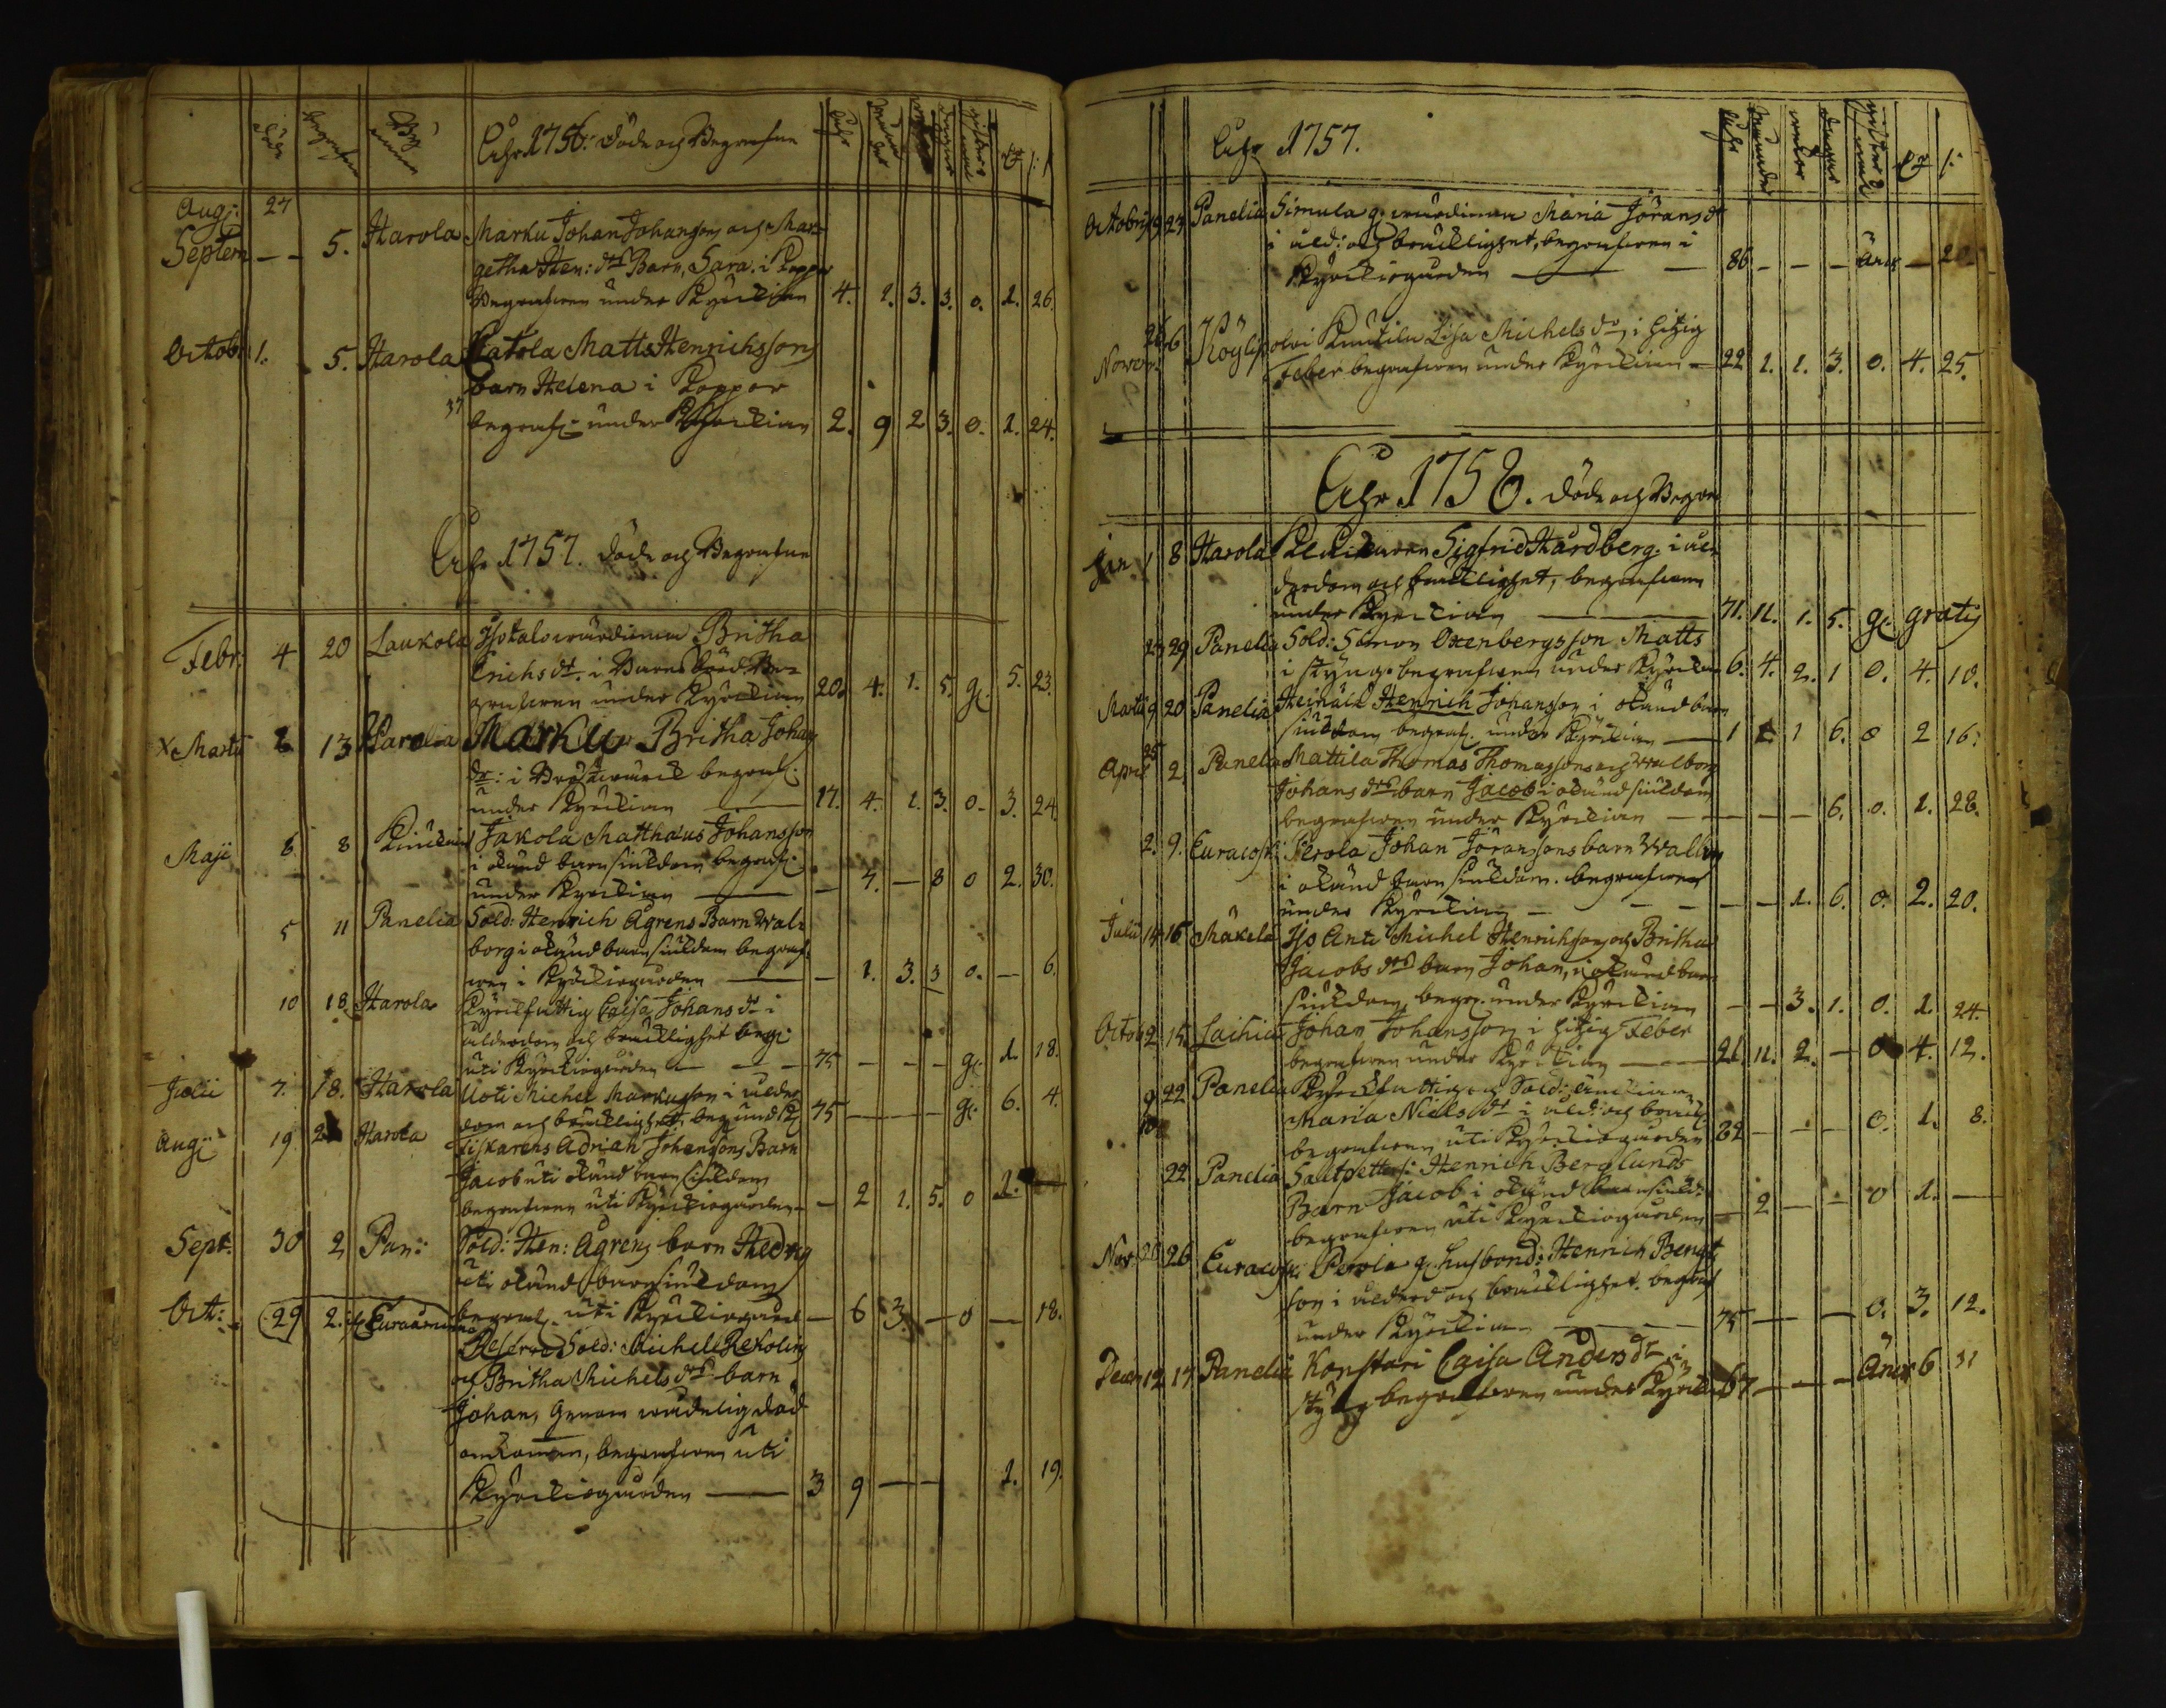 Åhr 1756: Döde och Begrafne
Åhr
Augj: 27
Septem — — 5. Harola Marku Johan Johansons och Mar-
getha Hen: dtrs Barn, Sara. i Koppor
Begrafwen under Kyrckian 4. 1. 3. 3. 0. 1. 26.
Octobr 1. 5. Harola Catola Matts Henrichssons
barn Helena i Koppor
begrafn under Kyrckian 2. 9 2 3. 0. 1. 24.
Åhr 1757. Döde och Begrafne
Febr. 4 20 Laukola Isotalo wärdinna Britha
Erichs dr. i Barns börd. Be-
grafwen under Kyrckian 20. 4. 1. 5. g. 5. 23.
x Martii 13 Panelia Marku Britha Johans
dr: i Bröstwärck begrafn
under Kyrckian — 17. 4. 1. 3. 0. 3. 24.
Maji 8 Jakola Matthæus Johansson
i okänd barnsiukdom begrafn
under Kyrckian — — 4. — 3 0 2. 30.
5 11 Panelia Sold: Henrich Ågrens Barn Wal-
borg i okänd barnsiukdom begraf-
wen i Kyrckiogården — — 1. 3. 3 0. — 6.
10 18. Harola Kyrckfattig Caisa Johans dr i
ålderdom och bräcklighet begr:
uti Kyrckiogården — — 75 — — — g. 1. 18.
Julii 7. 18. Harola Uoti Michel Markusson i ålder-
dom och bräcklighet, beg. und K. 75 — — — g. 6. 4.
Augi 19 Harola Fiskarens Adrian Johanssons Barn
Jacob uti okänd barn siukdom
begrafwen uti Kyrckiogården — — 2 1. 5. 0 1. —
Sept: 30 2 Pan: Sold: Hen: Ågrens barn Hedvig
uti okänd barnsiukdom
begrafn. uti Kyrckiogård — 6 3. — 0 — 18.
Oct: 29 2. Euraåminne
Reserve Sold: Michell Rekolins
och Britha Michels dtrs barn
Johan, Genom wådelig död
omkommen, begrafwen uti
Kyrckiogården — 3 9 — — 1. 19.
Åhr 1757.
Åhr Månader wekor dagar
Octobris 19 23 Panelia Simula g. wärdinna Maria Jörans dr
i åld: och bräcklighet, begrafwen i
Kyrckiogården — — 86 — — — — 20.
Novembr. 26 6 Köyliö Lisa Michels dr, i hitzig
Feber begrafwen under Kyrckian — 22 1. 1. 3. 0. 4. 25.
Åhr 1758. Döde och Begraf
Jan. 1 8 Harola Klockaren Sigfrid Hårdberg. i ål-
derdom och bräcklighet, begrafwen
under Kyrckian — 71. 11. 1. 5. g. gratis
23 29 Panelia Sold: Simon Oxenbergs son Matts
i styng. begrafwen under Kyrckian 6. 4. 2. 1 0. 4. 10.
Martii 9 20 Panelia Heinälä Henrich Johansson i okänd barn
siukdom begraf. under Kyrckian — 1 1 6. 0 2 16.
April 25 2 Panelia Mattila Thomas Thomassons och Walborg
Johans dtrs barn Jacob i okänd siukdom
begrafwen under Kyrckian — — — — 6. 0. 1. 28.
2. 9. Euracoski Perola Johan Jöranssons barn Walborg
i okänd barn siukdom. begrafwen
under Kyrckian — — — — 1. 6. 0. 2. 20.
Julii 14 16 Mäkelä Iso Anti Michel Henrichsons och Britha
Jacobs dtrs barn Johan, i okänd barn
siukdom begr. under Kyrckian — — 3. 1. 0. 1. 24.
Octobr 2 15 Laihia Johan Johansson i hitzig Feber
begrafwen under Kyrckian — 21. 11. 2. — 0 4. 12.
9 22 Panelia Kyrckfattig og Sold: änckian
Maria Niels dr i åld: och bräck:
begrafwen uti Kyrckiogården 82 — — — 0. 1. 8.
22 Panelia Saltpetters: Henrich Berglunds
Barn Jacob i okänd barnsiukd:
begrafwen uti Kyrckiogården — 2 — — 0 1. —
Nov: 20 26 Euracoski Perola g. husbond: Henrich Bengt
son i ålderd och bräcklighet. begraf
under Kyrckian — 75 — — 0. 3. 12.
Decem 12 17 Panelia Konstari Caisa Anders dr i
styng begrafwen under Kyrckian 67 — — — 6 31